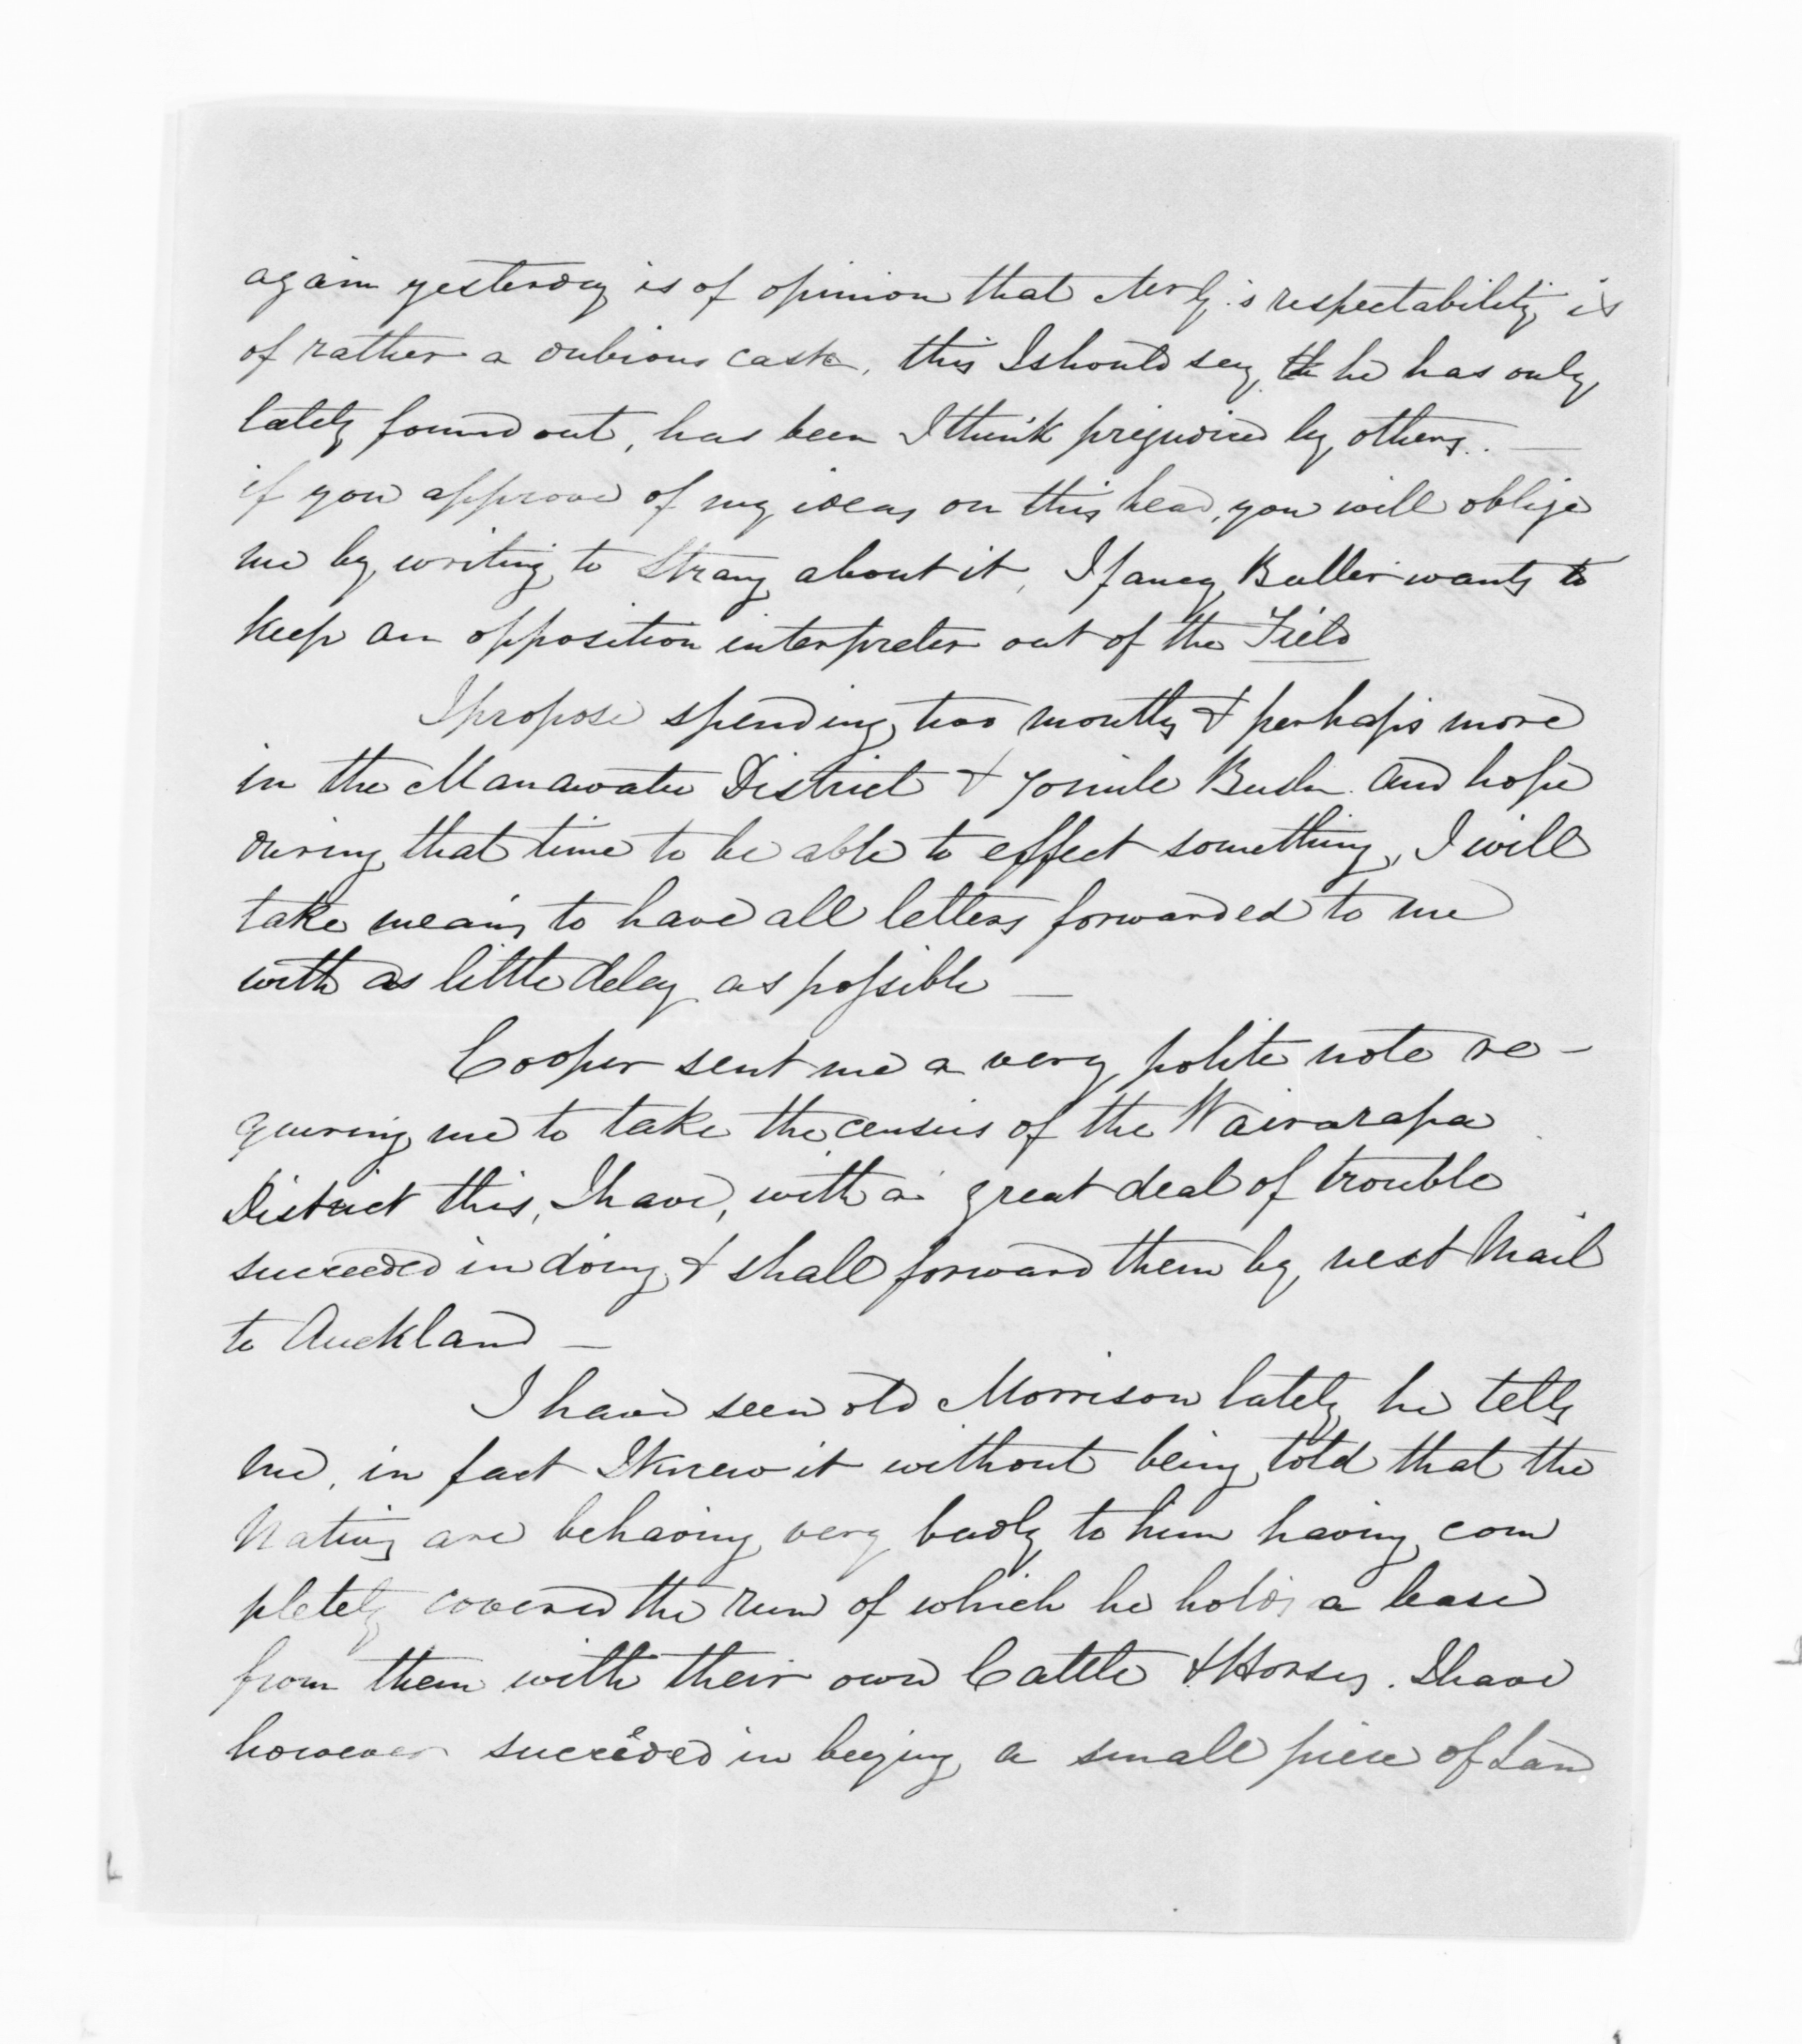 again yesterday is of opinion that Mr G.'s respectability is
of rather a dubious caste, this I should say, he has only
lately found out, has been I think prejudiced by others. —
if you approve of my ideas on this head, you will oblige
me by writing to Strang about it, I fancy Buller wants to
keep an opposition interpreter out of the Field
I propose spending two months & perhaps more
in the Manawatu District & 70 mile Bush. and hope
during that time to be able to effect something, I will
take means to have all letters forwarded to me
with as little delay as possible —
Cooper sent me a very polite note re-
quiring me to take the census of the Wairarapa
District this, I have, with a great deal of trouble
succeeded in doing & shall forward them by next Mail
to Auckland —
I have seen old Morrison lately he tells
me, in fact I knew it without being told that the
Natives are behaving very badly to him having com
pletely covered the run of which he holds a lease
from them with their own Cattle & Horses. I have
however succeeded in buying a small piece of Land